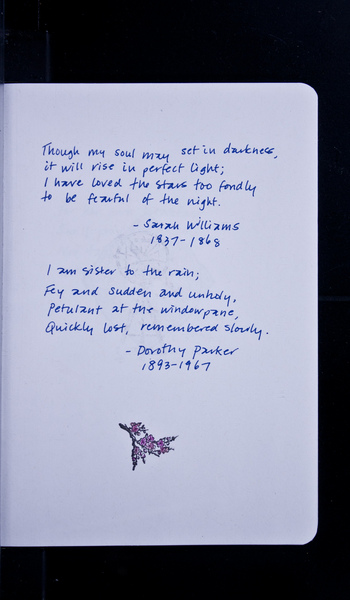 Though my soul may set in darkness,
it will rise in perfect light;
I have loved the stars too fondly
to be fearful of the night.
- Sarah Williams
1837-1868
I am sister to the rain;
Fey and sudden and unholy,
Petulant at the windowpane,
Quickly lost, remembered slowly.
- Dorothy Parker
1893-1967